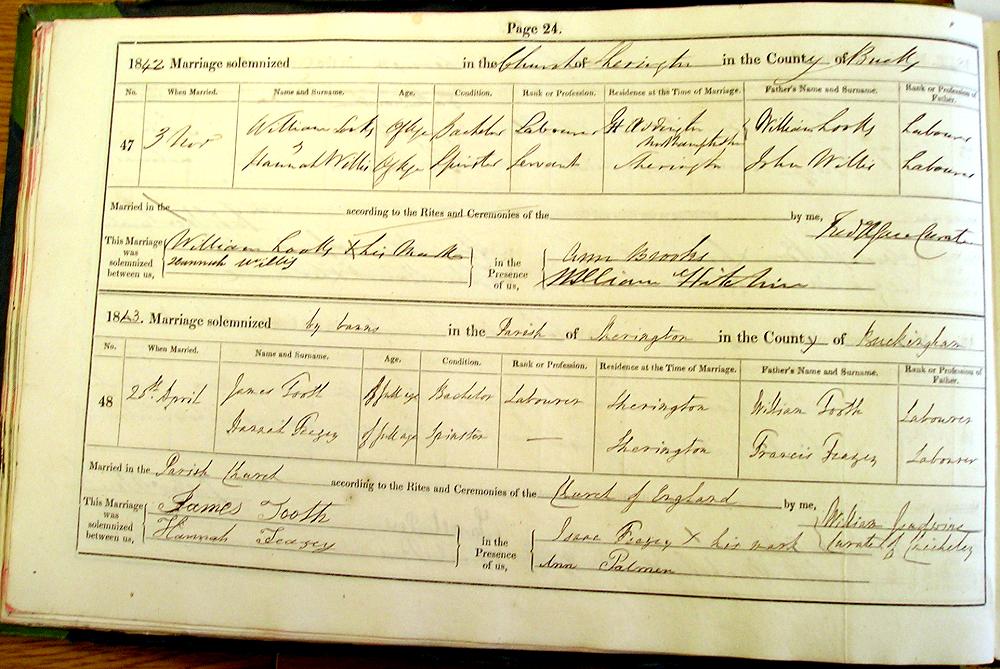 Page 24.
1842 Marriage solemnized in the Church of Sherington in the County of Bucks
No. When Married. Name and Surname. Age. Condition. Rank or Profession. Residence at the Time of Marriage. Father's Name and Surname. Rank or Profession of Father.
47 3 Nov William Looks Of Age Bachelor Labourer Northampton William Looks Labourer
Hannah Willis Of Age Spinster Servant Sherington John Willis Labourer
Married in the according to the Rites and Ceremonies of the by me,
Curate
This Marriage was solemnized between us, William Looks X his Mark
Hannah Willis
in the Presence of us, Ann Brooks
William
1843. Marriage solemnized by banns in the Parish of Sherington in the County of Buckingham
No. When Married. Name and Surname. Age. Condition. Rank or Profession. Residence at the Time of Marriage. Father's Name and Surname. Rank or Profession of Father.
48 25th April James Tooth of full age Bachelor Labourer Sherington William Tooth Labourer
Hannah Feazey of full age Spinster — Sherington Francis Feazey Labourer
Married in the Parish Church according to the Rites and Ceremonies of the Church of England by me,
William
Curate of
This Marriage was solemnized between us, James Tooth
Hannah Feazey
in the Presence of us, Isaac Feazey X his mark
Ann Palmer